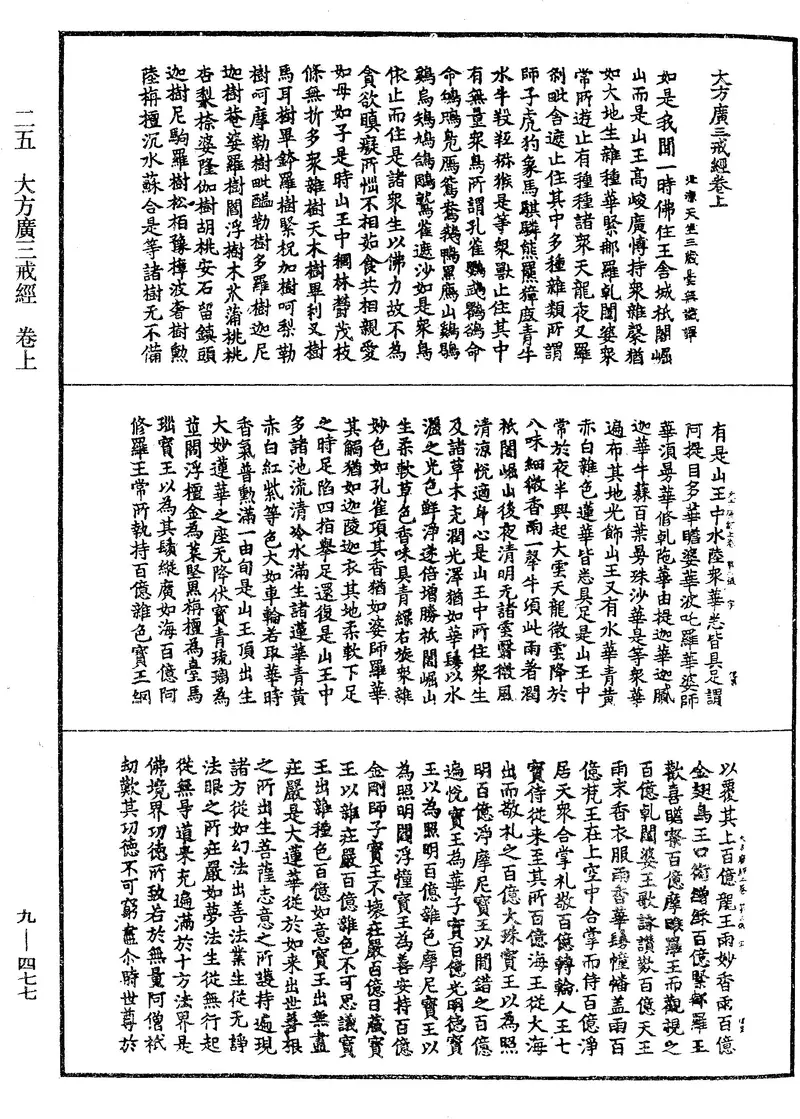 大方廣三戒經卷上
北涼天竺三藏曇無讖譯
如是我聞一時佛住王舍城祇闍崛
山而是山王高峻廣博持衆雜聲猶
如大地生雜種華緊那羅乹闥婆衆
常所遊止有種種諸衆天龍夜叉羅
剎毗舍遮止住其中多種雜類所謂
師子虎豹象馬騏驎熊羆獐麇青牛
水牛羖羝猕猴是等衆獸止住其中
有無量衆鳥所謂孔雀鸚鵡鸜鵒命
命鴝鴉鳬鴈鴛鴦鵝鴨黑鴈山鷄鵾
鷄烏鵄鳩鴿鷗鷲雀遮沙如是衆鳥
依止而住是諸衆生以佛力故不為
貪欲瞋癡所惱不相茹食共相親愛
如母如子是時山王中稠林欝茂枝
條無折多衆雜樹天木樹畢利叉樹
馬耳樹畢鉢羅樹緊柷加樹呵梨勒
樹呵摩勒樹毗醯勒樹多羅樹迦尼
迦樹菴婆羅樹閻浮樹木苽蒲桃桃
杏梨柰婆隆伽樹胡桃安石留鎮頭
迦樹尼駒羅樹松栢豫樟波奢樹勲
陸栴檀沉水蘇合是等諸樹无不備
有是山王中水陸衆華悉皆具足謂
阿提目多華瞻婆華波吒羅華婆師
華湏曼華修乹陁華由提迦華迦膩
迦華牛蘇百葉曼殊沙華是等衆華
遍布其地光飾山王又有水華青黃
赤白雜色蓮華皆悉具足是山王中
常於夜半興起大雲天龍微雲降於
八味細微香雨一搫牛頃此雨著潤
祇闍崛山後夜清明无諸雲翳微風
清涼悅適身心是山王中所住衆生
及諸草木充潤光澤猶如華鬘以水
灑之光色鮮淨遂倍增勝祇闍崛山
生柔軟草色香味具青緑右旋衆雜
妙色如孔雀項其香猶如婆師羅華
其觸猶如迦陵迦衣其地柔軟下足
之時足陷四指舉足還復是山王中
多諸池流清冷水滿生諸蓮華青黃
赤白紅紫等色大如車輪若取華時
香氣普勲滿一由旬是山王頂出生
大妙蓮華之座无降伏寶青琉璃為
莖閻浮檀金為葉堅黑栴檀為臺馬
瑙寶王以為其鬚縱廣如海百億阿
修羅王常所執持百億雜色寶王網
以覆其上百億龍王雨妙香雨百億
金翅鳥王口銜繒綵百億緊那羅王
歡喜瞻察百億摩睺羅王而觀視之
百億乹闥婆王歌詠讃歎百億天王
雨末香衣服雨香華鬘幢幡蓋雨百
億梵王在上空中合掌而侍百億淨
居天衆合掌礼敬百億轉輪人王七
寶侍從来至其所百億海王從大海
出而敬礼之百億大珠寶王以為照
明百億淨摩尼寶王以間錯之百億
遍悅寶王為華子寶百億光明德寶
王以為照明百億雜色摩尼寶王以
為照明閻浮幢寶王為善安持百億
金剛師子寶王不壞莊嚴百億日藏寶
王以雜莊嚴百億雜色不可思議寶
王出雜種色百億如意寶王出無盡
莊嚴是大蓮華從於如來出世善根
之所出生菩薩志意之所護持遍現
諸方從如幻法出善法業生從无諍
法眼之所莊嚴如夢法生從無行起
從無㝵道来充遍滿於十方法界是
佛境界功德所致若於無量阿僧祇
劫歎其功德不可窮盡尒時世尊於
二五 大方廣三戒經 卷上
九—四七七